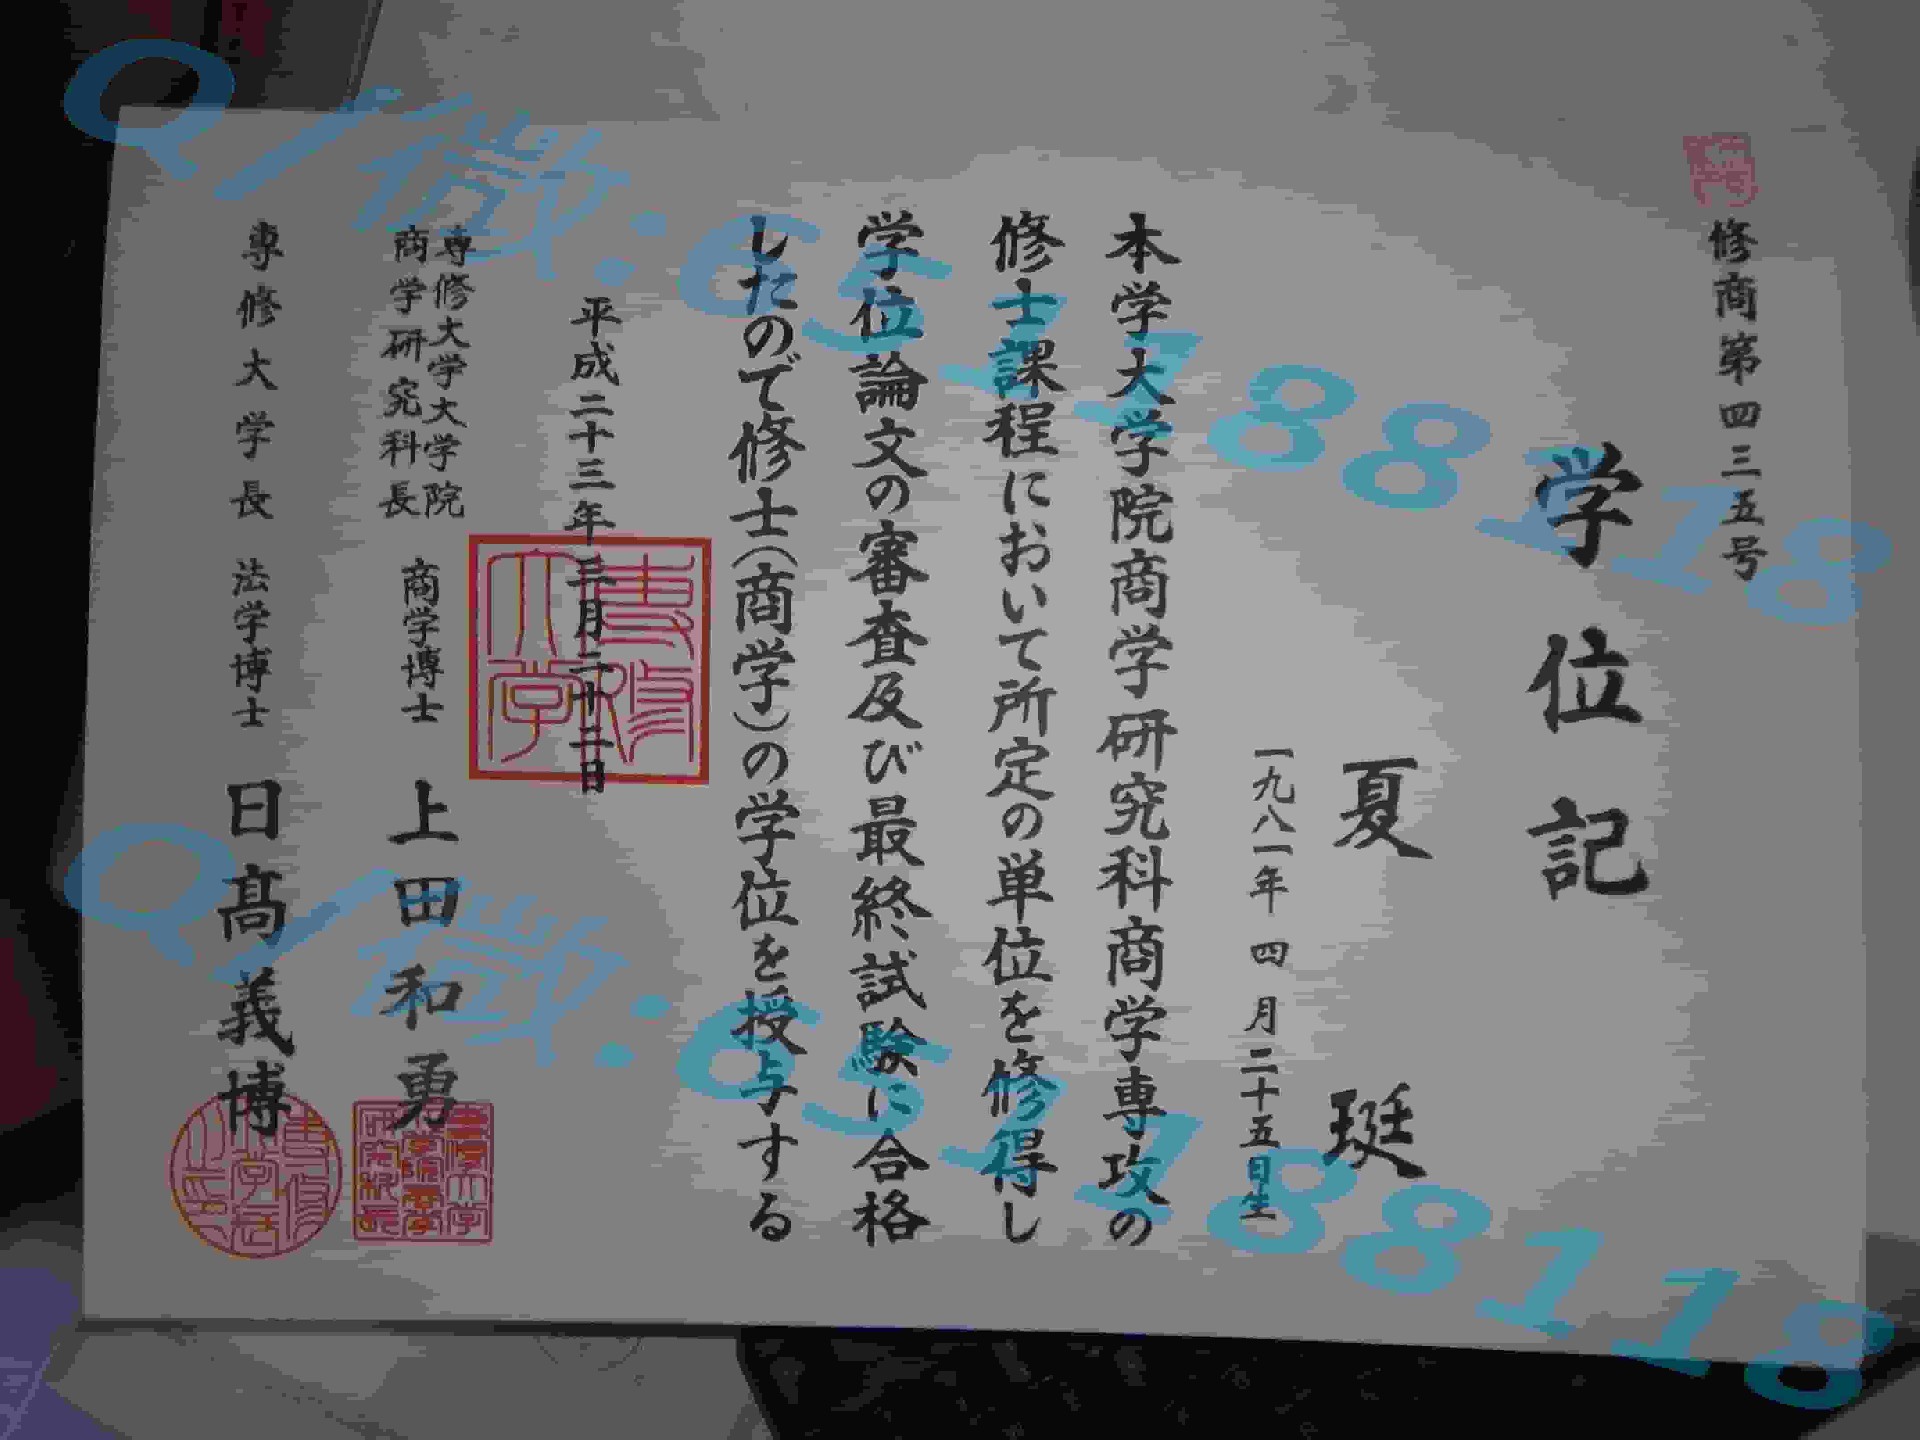 修商第四三五号
学位記
夏 珽
一九八一年 四月二十五日生
本学大学院商学研究科商学専攻の
修士課程において所定の単位を修得し
学位論文の審査及び最終試験に合格
したので修士(商学)の学位を授与する
平成二十三年三月二十二日
専修大学大学院
商学研究科長 商学博士 上田和勇
専修大学長 法学博士 日髙義博
専修大学
Q/微:65188118
Q/微:65188118